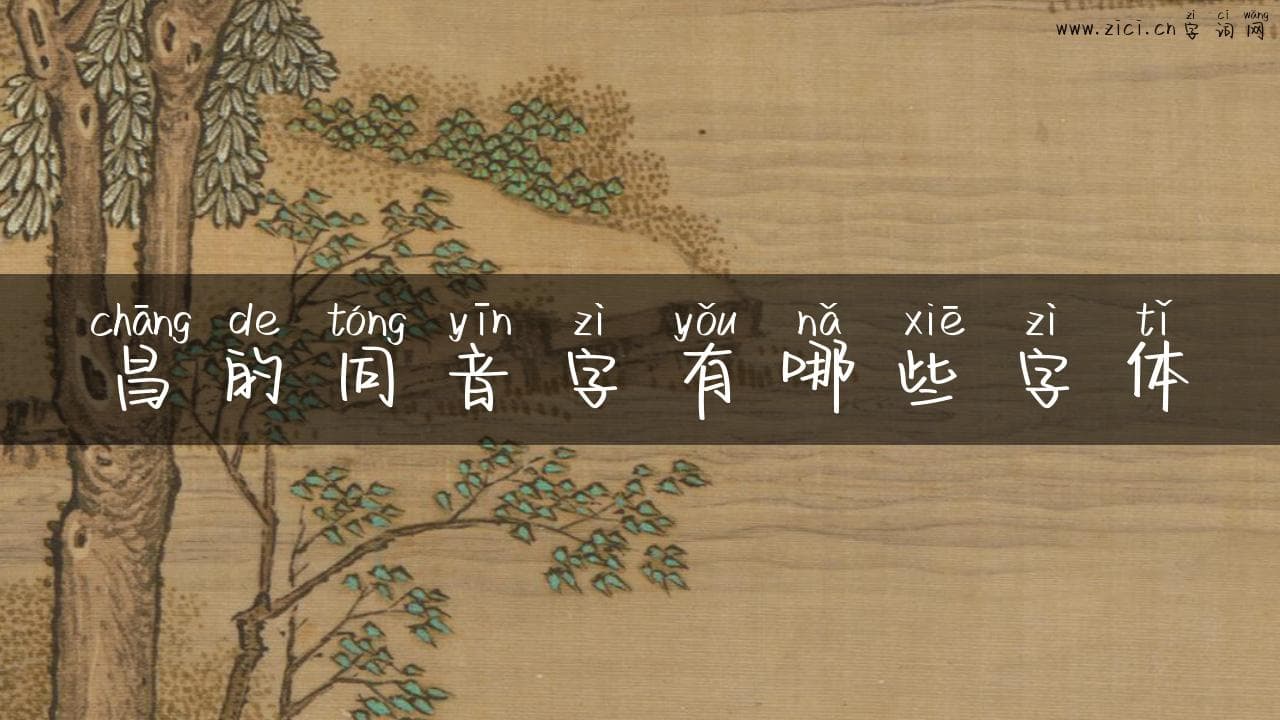 www.zici.cn 字词网
zì cí wǎng
chāng de tóng yīn zì yǒu nǎ xiē zì tǐ
昌的同音字有哪些字体